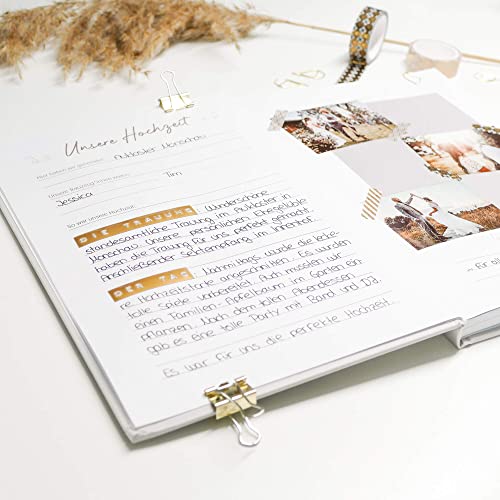 Unsere Hochzeit
Aukloster Monschau
Unsere Trauzeug:innen waren:
Jessica Tim
So war unsere Hochzeit:
DIE TRAUUNG Wunderschöne
standesamtliche Trauung im Aukloster in
Monschau. Unsere persönlichen Ehegelübde
haben die Trauung für uns perfekt gemacht.
Anschließender Sektempfang im Innenhof.
DER TAG Nachmittags wurde die lecke-
re Hochzeitstorte angeschnitten. Es wurden
tolle Spiele vorbereitet. Auch mussten wir
einen Familien-Apfelbaum im Garten ein
pflanzen. Nach dem tollen Abendessen
gab es eine tolle Party mit Band und DJ.
Es war für uns die perfekte Hochzeit...